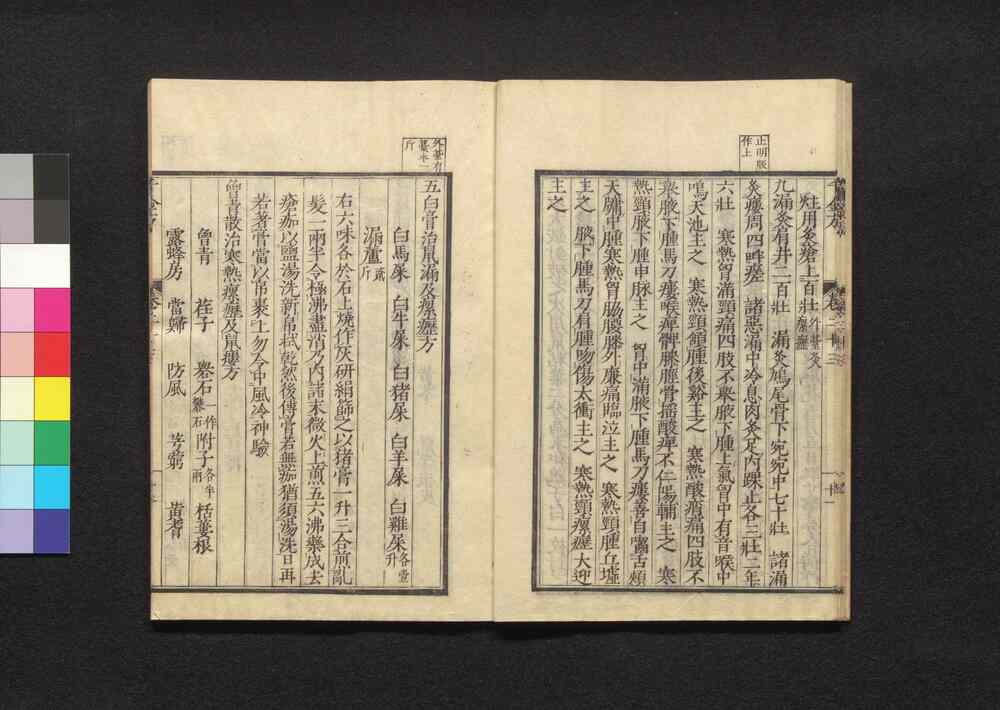 正明版
作上
炷用灸瘡上百壯外臺灸
壯瘰癧
九漏灸肩井二百壯 漏灸鳩尾骨下宛宛中七十壯 諸漏
灸瘰周四畔瘥 諸惡漏中冷息肉灸足內踝上各三壯二年
六壯 寒熱胃滿頸痛四肢不舉腋下腫上氣胃中有音喉中
鳴天池主之 寒熱頸頷腫後谿主之 寒熱酸㾓痛四肢不
舉腋下腫馬刀瘻喉痺髀膝脛骨搖酸痺不仁陽輔主之 寒
熱頸腋下腫申脉主之 胃中滿腋下腫馬刀瘻善自嚙舌頰
天牖中腫寒熱胃脇腰膝外廉痛臨泣主之 寒熱頸腫丘墟
主之 腋下腫馬刀肩腫吻傷太衝主之 寒熱頸瘰癧大迎
主之
外臺有
蔾米一
斤
五白膏治鼠漏及瘰癧方
白馬屎 白牛屎 白猪屎 白羊屎 白雞屎各壹
升
漏蘆貳
斤
右六味各於石上燒作灰研絹篩之以猪膏一升三合煎亂
髮一兩半令極沸盡消乃內諸末微火上煎五六沸藥成去
瘡痂以鹽湯洗新帛拭乾然後傅膏若無痂猶須湯洗日再
若著膏當以帛裹上勿令中風冷神驗
曾青散治寒熱瘰癧及鼠瘻方
曾青 荏子 礜石一作
礬石 附子各半
兩 栝蔞根
露蜂房 當歸 防風 芎藭 黃耆